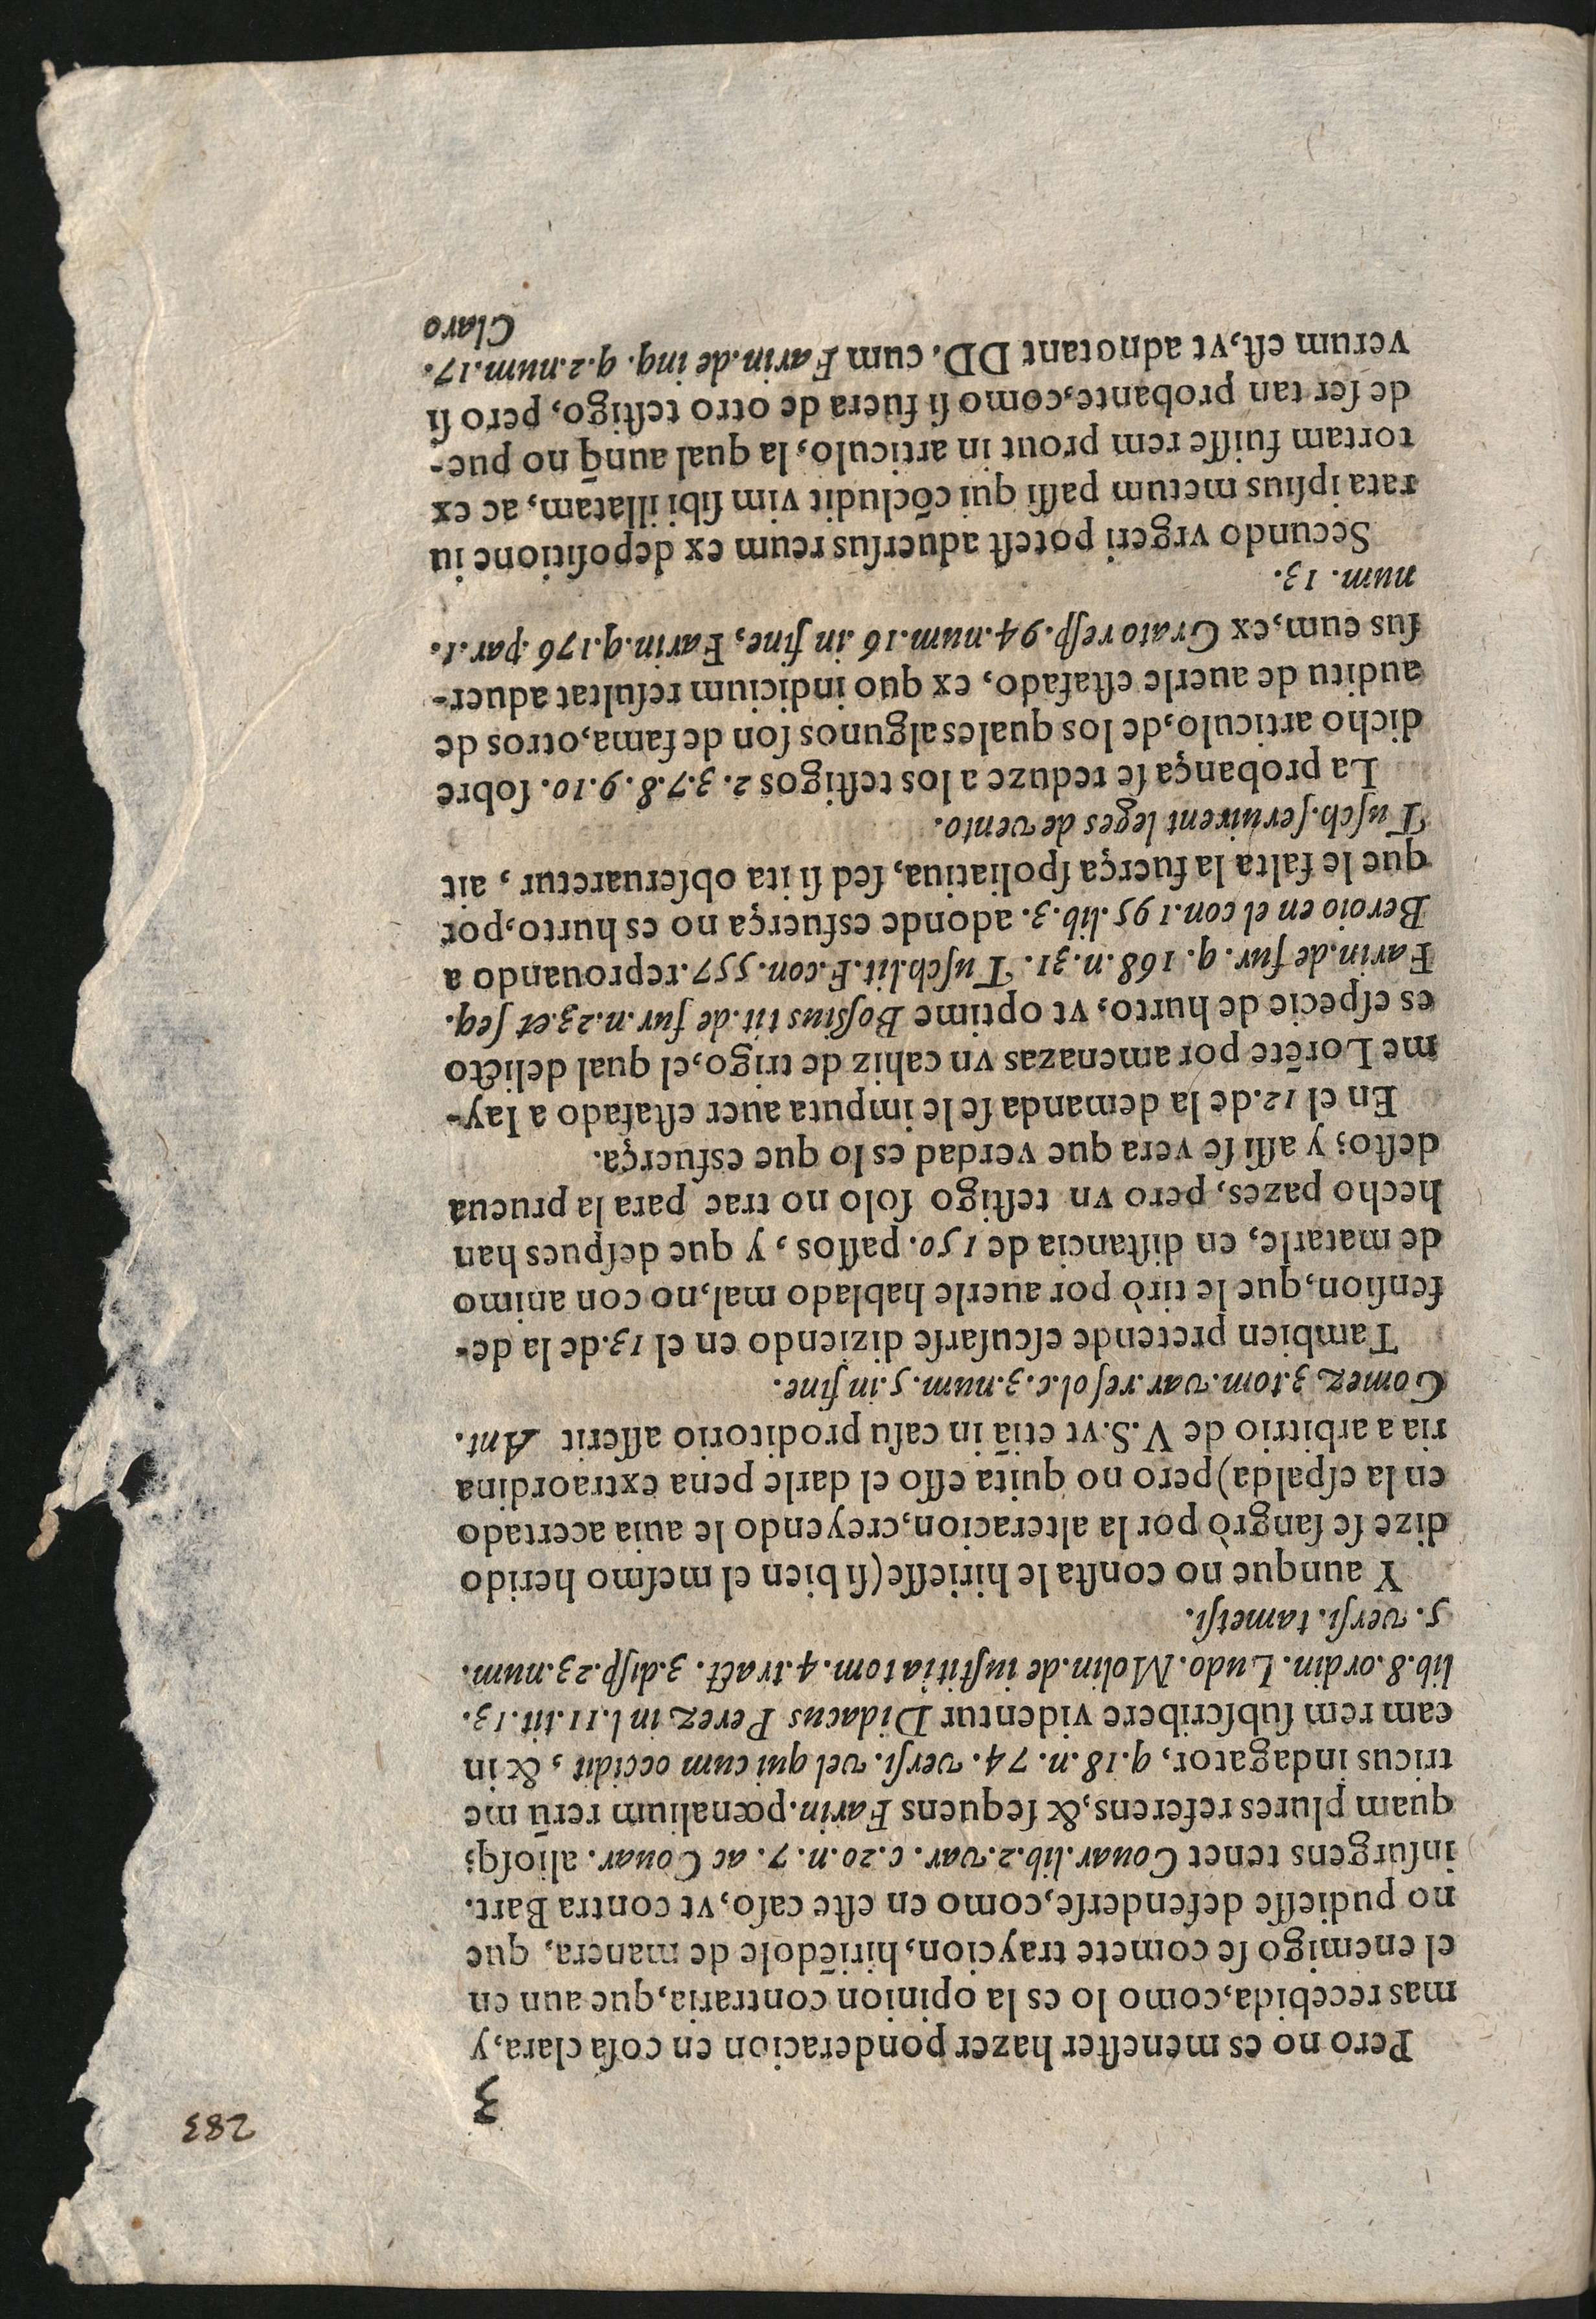 283
3
Pero no es menester hazer ponderacion en cosa clara, y
mas recebida, como lo es la opinion contraria, que aun en
el enemigo se comete traycion, hiriẽdole de manera, que
no pudiesse defenderse, como en este caso, vt contra Bart.
insurgens tenet Couar. lib. 2. var. c. 20. n. 7. ac Couar. aliosq;
quam plures referens, & sequens Farin. pœnalium rerũ me
tricus indagator, q. 18. n. 74. versi. vel qui cum occidit, & in
eam rem subscribere videntur Didacus Perez in l. 11. tit. 13.
lib. 8. ordin. Ludo. Molin. de iustitia tom. 4. tract. 3. disp. 23. num.
5. versi. tametsi.
Y aunque no consta le hiriesse (si bien el mesmo herido
dize se sangrò por la alteracion, creyendo le auia acertado
en la espalda) pero no quita esso el darle pena extraordina
ria a arbitrio de V. S. vt etiã in casu proditorio asserit Ant.
Gomez 3. tom. var. resol. c. 3. num. 5. in fine.
Tambien pretende escusarse diziendo en el 13. de la de-
fension, que le tirò por auerle hablado mal, no con animo
de matarle, en distancia de 150. passos, y que despues han
hecho pazes, pero vn testigo solo no trae para la prueua
desto; y assi se vera que verdad es lo que esfuerça.
En el 12. de la demanda se le imputa auer estafado a Iay-
me Lorẽte por amenazas vn cahiz de trigo, el qual delicto
es especie de hurto, vt optime Bossius tit. de fur. n. 23. et seq.
Farin. de fur. q. 168. n. 31. Tusch. lit. F. con. 557. reprouando a
Beroio en el con. 195. lib. 3. adonde esfuerça no es hurto, por
que le falta la fuerça spoliatiua, sed si ita obseruaretur, ait
Tusch. seruirent leges de vento.
La probança se reduze a los testigos 2. 3. 7. 8. 9. 10. sobre
dicho articulo, de los quales algunos son de fama, otros de
auditu de auerle estafado, ex quo indicium resultat aduer-
sus eum, ex Grato resp. 94. num. 16. in fine, Farin. q. 176. par. 1.
num. 13.
Secundo vrgeri potest aduersus reum ex depositione iu
rata ipsius metum passi qui cõcludit vim sibi illatam, ac ex
tortam fuisse rem prout in articulo, la qual aunq̃ no pue-
de ser tan probante, como si fuera de otro testigo, pero si
verum est, vt adnotant DD. cum Farin. de inq. q. 2. num. 17.
Claro